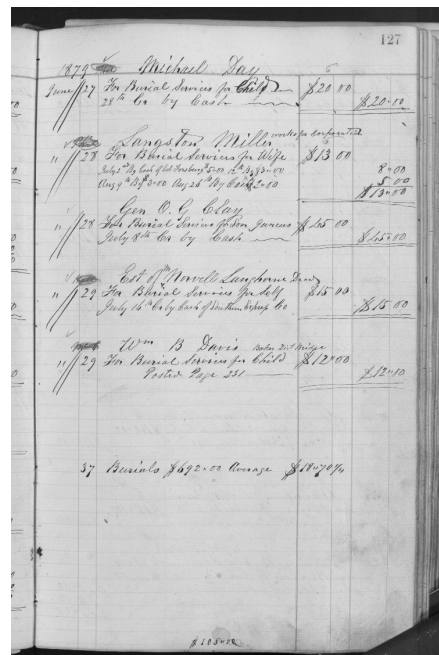 127
1879 Michael Day
June 27 For Burial Services for Child $20.00
28th Cr by Cash $20.00
Langston Miller works for
" 28 For Burial Services for Wife $13 00
July 2nd By Cash of 5.00 12th By $3.00 8.00
Aug 9th By $3.00 Aug 26th By Cash 2.00 5.00
$13.00
Gen O. G. Clay
" 28 For Burial Services for Son $45 00
July 8th Cr by Cash $45.00
Est of Norvell Langhorne Dead
" 29 For Burial Services for Self $15 00
July 16th Cr by Cash of Southern Express Co $15.00
Wm B Davis
" 29 For Burial Services for Child $12.00
Posted Page 231 $12.00
37 Burials $692.00 Average $18.70
$105.00